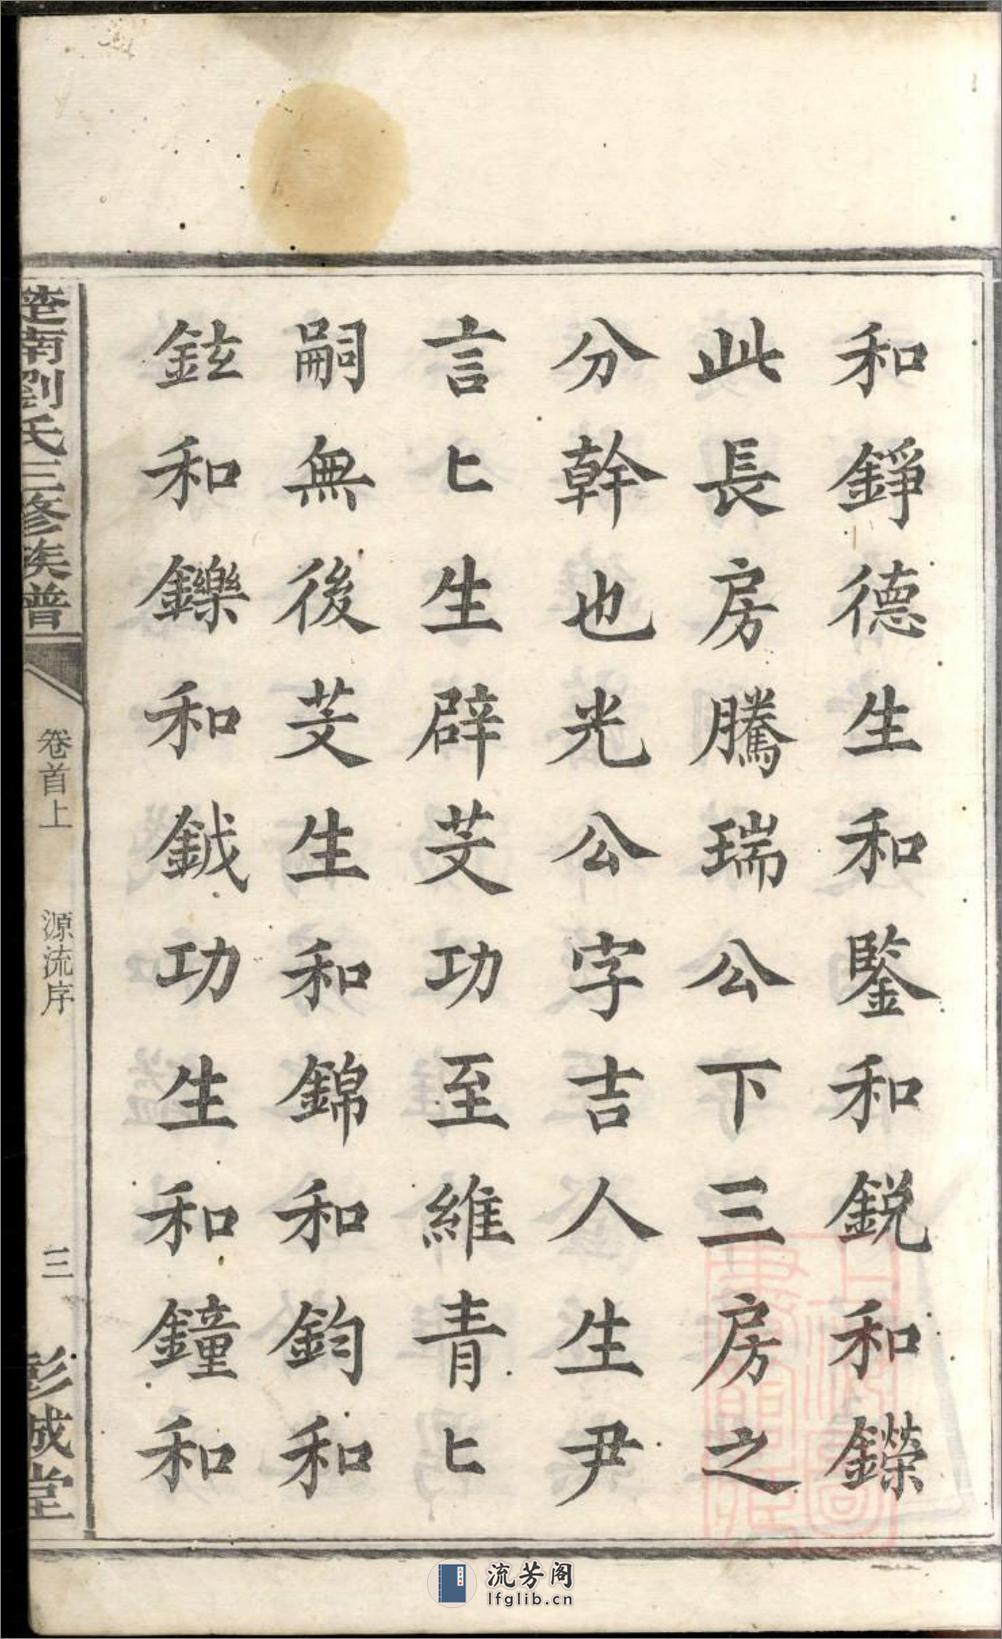 和錚德生和鋻和鋭和鑅
此長房騰瑞公下三房之
分幹也光公字吉人生尹
言匕生辟芠功至維青匕
嗣無後芠生和錦和鈞和
鉉和鑠和鉞功生和鐘和
楚南劉氏三修族譜
卷首上
源流序
三
彭城堂
流芳阁
lfglib.cn